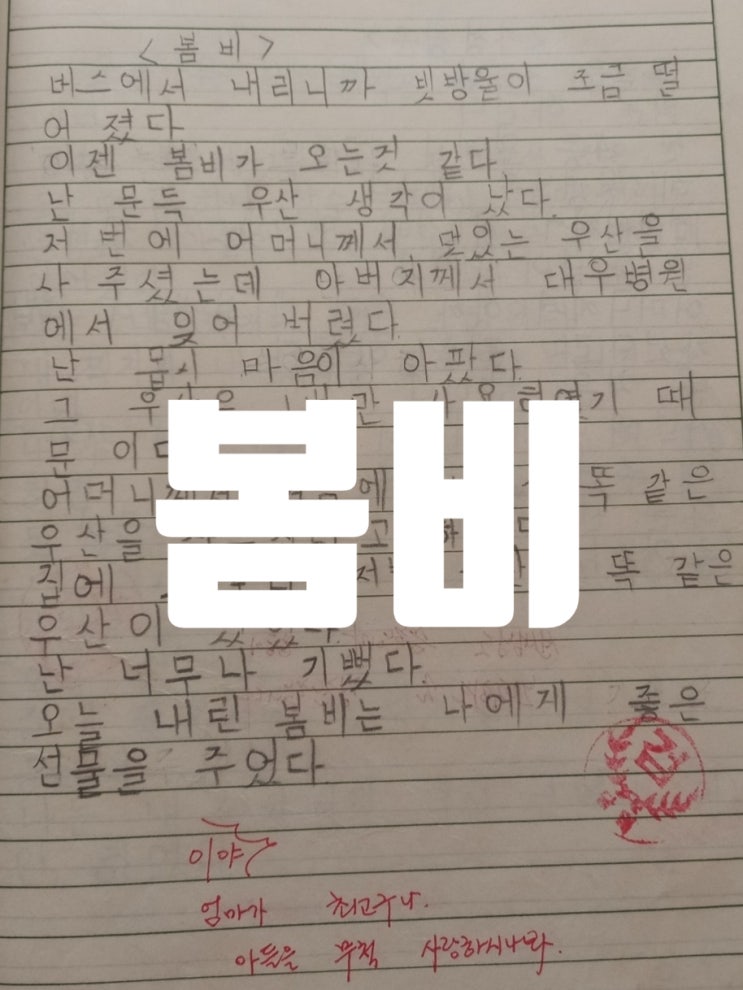 < 봄 비 >
버스에서 내리니까 빗방울이 조금 떨
어 졌다
이젠 봄비가 오는것 같다.
난 문득 우산 생각이 났다.
저 번에 어머니께서 멋있는 우산을
사 주셨는데 아버지께서 대우병원
에서 잊어 버렸다.
난 몹시 마음이 아팠다.
그
때
문 이
봄비
어머니께서 똑 같은
우산을
집에 똑 같은
우산이
난 너무나 기뻤다.
오늘 내린 봄비는 나에게 좋은
선물을 주었다
이야
엄마가 최고구나.
아들을 무척 사랑하시나봐.